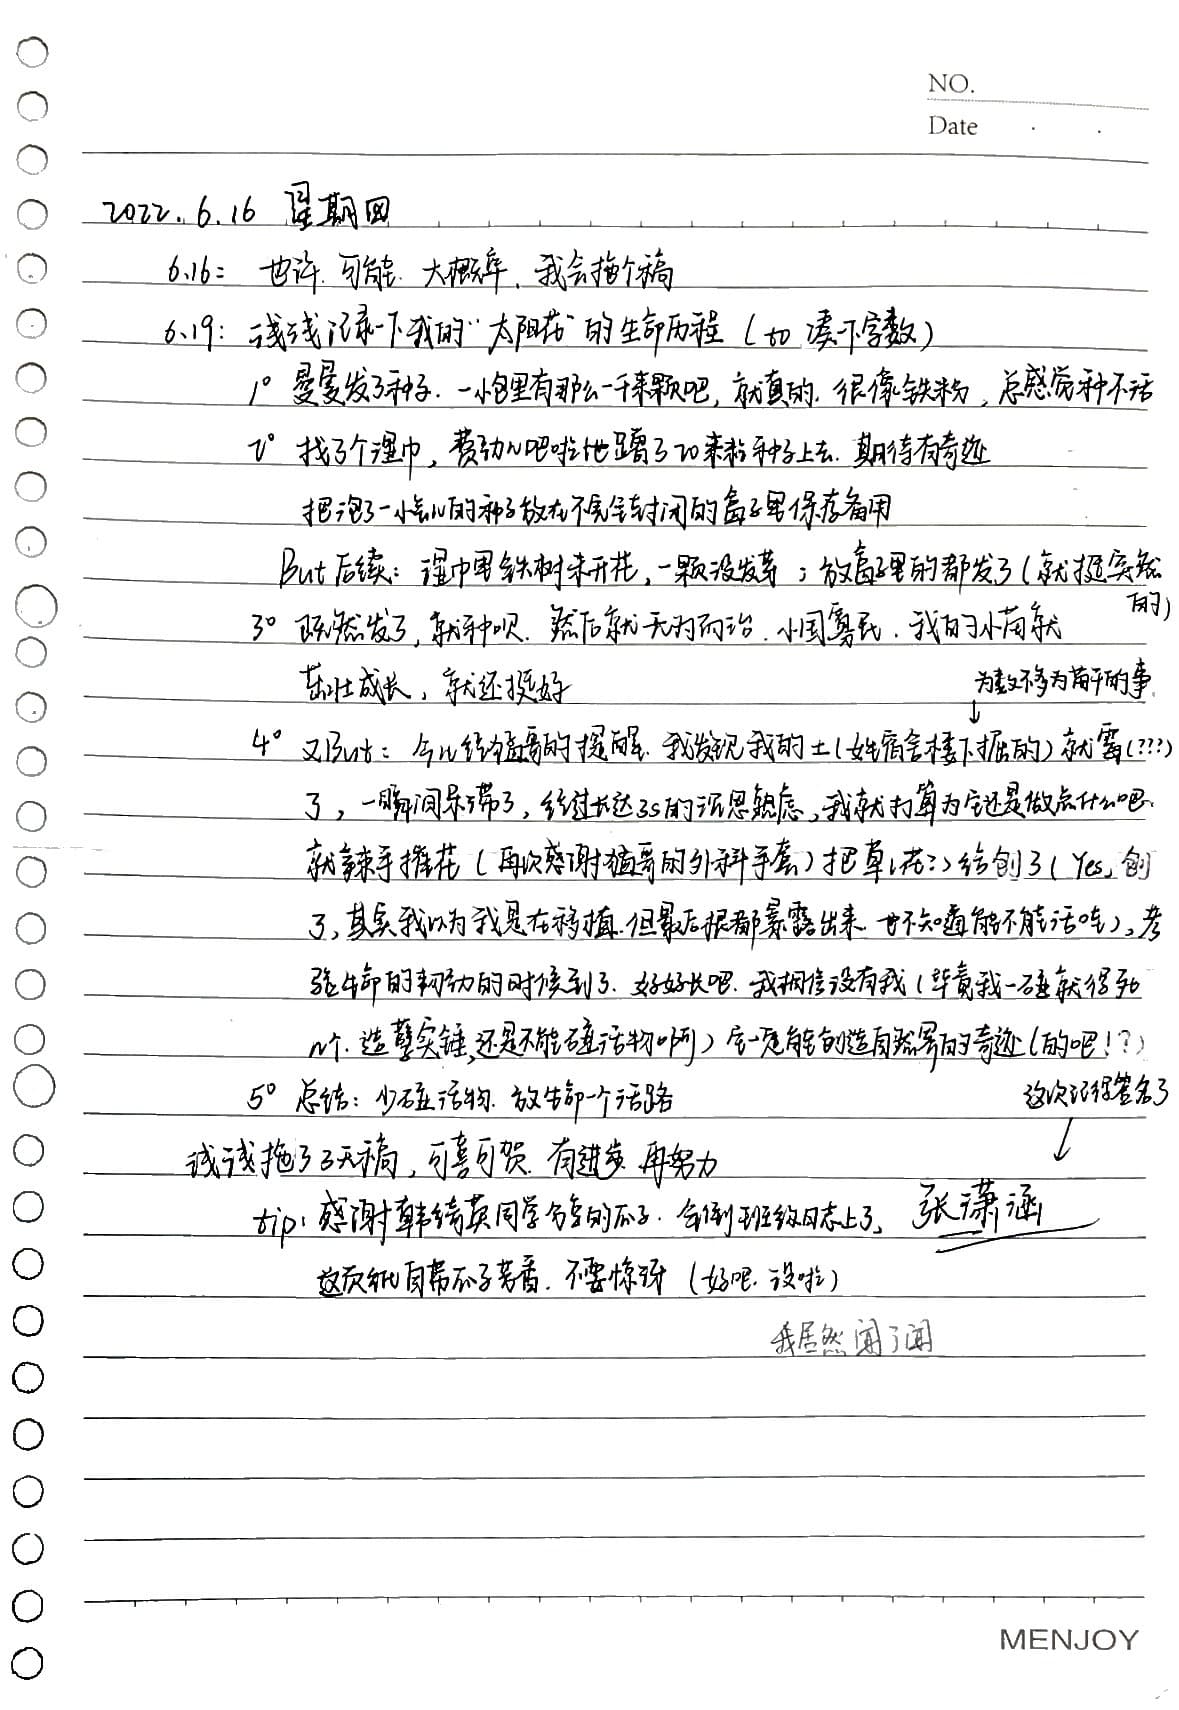 NO.
Date
2022.6.16 星期四
6.16: 也许.可能.大概率.我会拖个稿
6.19: 浅浅记录一下我的“太阳花”的生命历程(to 凑下字数)
1° 曼曼发了种子.一小包里有那么一千来颗吧,就真的.很像铁粉,总感觉种不活
2° 找了个湿巾,费劲儿吧啦地蹭了20来粒种子上去.期待有奇迹
把泡了一小会儿的种子放在不完全封闭的盒子里保存备用
But后续:湿巾里铁树未开花,一颗没发芽;放盒子里的都发了(就挺突然的)
3° 既然发了,就种呗.然后就无为而治.小国寡民.我的小苗就
茁壮成长,就还挺好
为数不多为苗干的事
4° 又But: 今儿经猛哥的提醒.我发现我的土(姓宿舍楼下掘的)就霉(???)
了,一瞬间呆滞了,经过长达3s的沉思熟虑,我就打算为它还是做点什么吧.
就辣手摧花(再次感谢猛哥的外科手套)把草(花?)给创了(Yes,创
了,其实我以为我是在移植.但最后根都暴露出来.也不知道能不能活哇),考
验生命的韧劲的时候到了.好好长吧.我相信没有我(毕竟我一碰就得死
n个.造孽实锤,还是不能碰活物啊)它一定能创造自然界的奇迹(的吧!?)
5° 总结: 少碰活物.放生命一个活路
这次记得签名了
浅浅拖了3天稿,可喜可贺.有进步.再努力
tip: 感谢韩绮英同学分享的瓜子.会倒班级日志上了,
张潇涵
这页纸自带瓜子芳香.不要惊讶(好吧.没啦)
我居然闻了闻
MENJOY